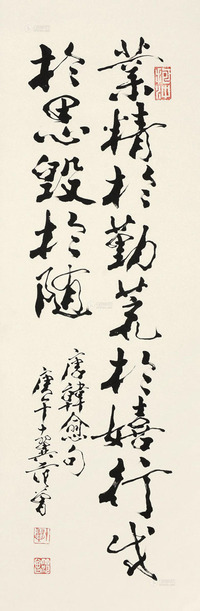 業精於勤荒於嬉行成
於思毀於隨
唐韓愈句
庚午十翼范曾